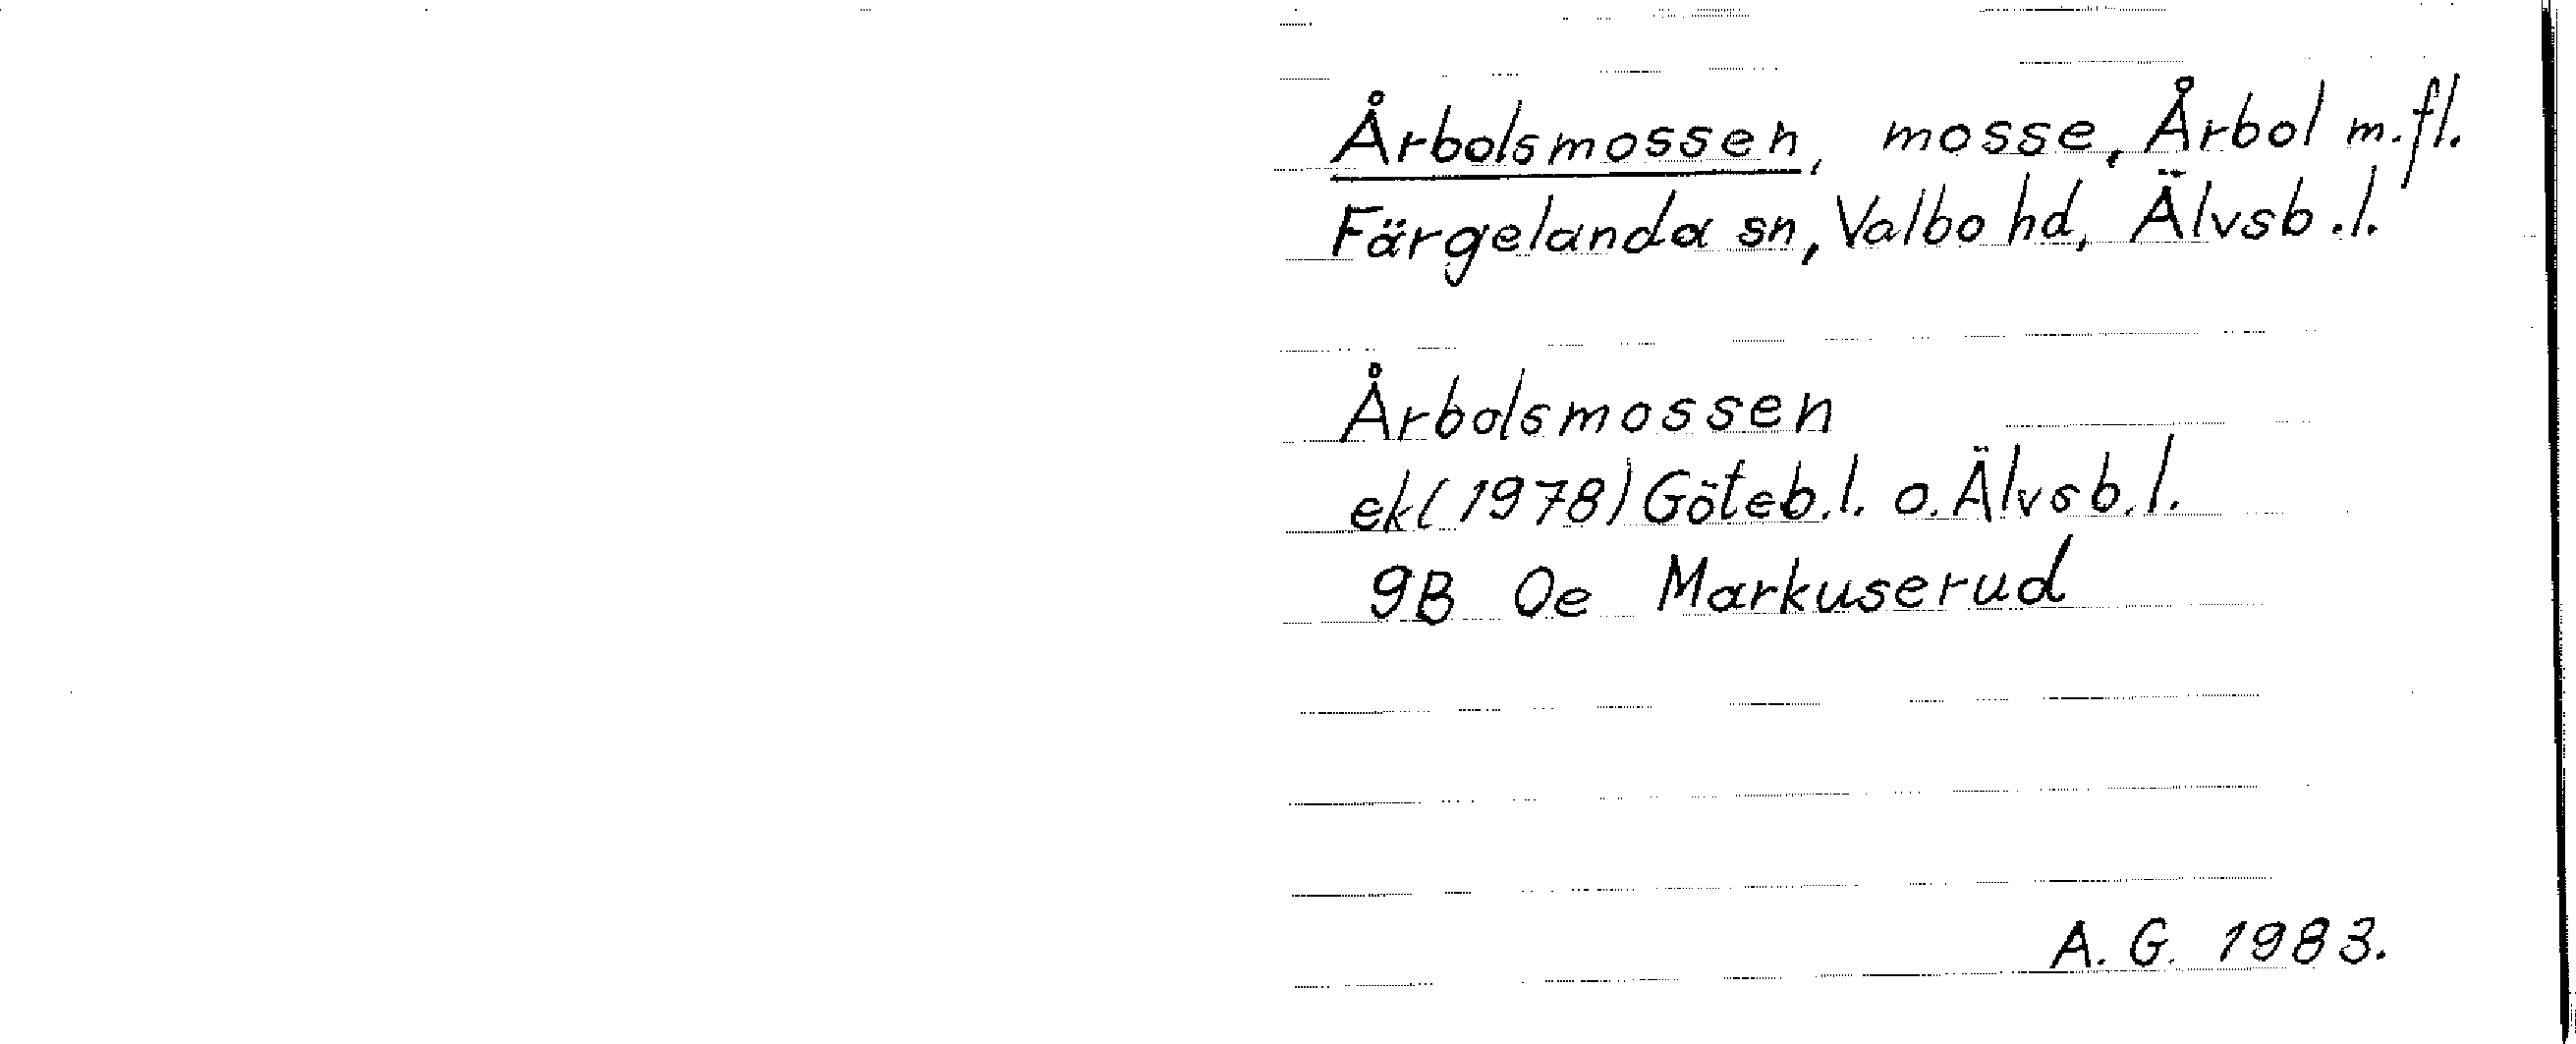 Årbolsmossen, mosse, Årbol m.fl.
Färgelanda sn, Valbo hd, Älvsb.l.
Årbolsmossen
ek(1978) Göteb.l. o. Älvsb.l.
9B 0e Markuserud
A. G. 1983.